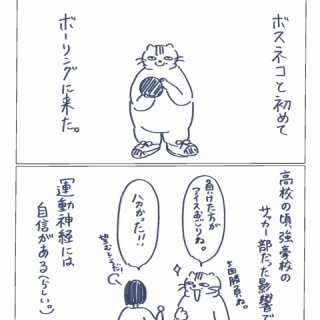 ボスネコと初めて
ボーリングに来た。
高校の頃、強豪校の
サッカー部だった影響で
運動神経には
自信がある(らしい。)
負けた方が
アイスおごりね。
3回勝負ね。
ハラかった!!
望むところだ!